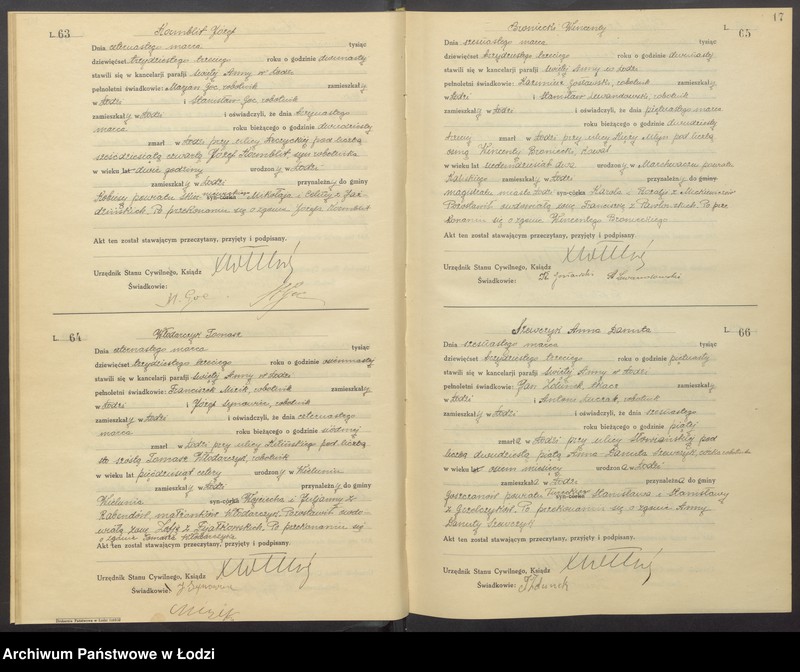 L. 63
Kornblit Józef
Dnia czternastego marca tysiąc
dziewięćset trzydziestego trzeciego roku o godzinie dwunastej
stawili się w kancelarji parafji świętej Anny w Łodzi
pełnoletni świadkowie: Marjan Goc, robotnik zamieszkały
w Łodzi i Stanisław Goc, robotnik
zamieszkały w Łodzi i oświadczyli, że dnia trzynastego
marca roku bieżącego o godzinie dwunastej
zmarł w Łodzi przy ulicy pod liczbą
sześćdziesiątą czwartą Józef Kornblit, syn robotnika
w wieku lat dwie godziny urodzony w Łodzi
zamieszkały w Łodzi przynależny do gminy
powiatu syn-córka Mikołaja i
Po przekonaniu się o zgonie Józefa Kornblit
Akt ten został stawającym przeczytany, przyjęty i podpisany.
Urzędnik Stanu Cywilnego, Ksiądz
Świadkowie:
M. Goc St. Goc
L. 64
Włodarczyk Tomasz
Dnia czternastego marca tysiąc
dziewięćset trzydziestego trzeciego roku o godzinie osiemnastej
stawili się w kancelarji parafji świętej Anny w Łodzi
pełnoletni świadkowie: Franciszek robotnik zamieszkały
w Łodzi i Józef robotnik
zamieszkały w Łodzi i oświadczyli, że dnia czternastego
marca roku bieżącego o godzinie siódmej
zmarł w Łodzi przy ulicy pod liczbą
sto szóstą Tomasz Włodarczyk, robotnik
w wieku lat pięćdziesiąt cztery urodzony w Wieluniu
zamieszkały w Łodzi przynależny do gminy
Wielunia syn-córka Wojciecha i Julianny z
małżonków Włodarczyk. Pozostawił owdo-
wiałą żonę Zofję z Fijałkowskich. Po przekonaniu się
o zgonie Tomasza Włodarczyka
Akt ten został stawającym przeczytany, przyjęty i podpisany.
Urzędnik Stanu Cywilnego, Ksiądz
Świadkowie:
17
L. 65
Broniecki Wincenty
Dnia szesnastego marca tysiąc
dziewięćset trzydziestego trzeciego roku o godzinie dwunastej
stawili się w kancelarji parafji świętej Anny w Łodzi
pełnoletni świadkowie: Kazimierz robotnik zamieszkały
w Łodzi i Stanisław Lewandowski, robotnik
zamieszkały w Łodzi i oświadczyli, że dnia piętnastego marca
roku bieżącego o godzinie dwudziestej
zmarł w Łodzi przy ulicy Księży Młyn pod liczbą
ósmą Wincenty Broniecki,
w wieku lat siedemdziesiąt dwa urodzony w powiatu
Kaliskiego zamieszkały w Łodzi przynależny do gminy
magistratu miasta Łodzi syn-córka Karola i z
Pozostawił owdowiałą żonę Franciszkę z Pawłowskich. Po prze-
konaniu się o zgonie Wincentego Bronieckiego
Akt ten został stawającym przeczytany, przyjęty i podpisany.
Urzędnik Stanu Cywilnego, Ksiądz
Świadkowie:
L. 66
Szewczyk Anna Danuta
Dnia szesnastego marca tysiąc
dziewięćset trzydziestego trzeciego roku o godzinie piętnastej
stawili się w kancelarji parafji świętej Anny w Łodzi
pełnoletni świadkowie: Jan Zdunek, tkacz zamieszkały
w Łodzi i Antoni robotnik
zamieszkały w Łodzi i oświadczyli, że dnia szesnastego
marca roku bieżącego o godzinie piątej
zmarła w Łodzi przy ulicy Słowiańskiej pod
liczbą dwudziestą piątą Anna Danuta Szewczyk, córka robotnika
w wieku lat osiem miesięcy urodzona w Łodzi
zamieszkała w Łodzi przynależna do gminy
powiatu syn-córka Stanisława i Stanisławy
Po przekonaniu się o zgonie Anny
Danuty Szewczyk
Akt ten został stawającym przeczytany, przyjęty i podpisany.
Urzędnik Stanu Cywilnego, Ksiądz
Świadkowie: J Zdunek
Archiwum Państwowe w Łodzi